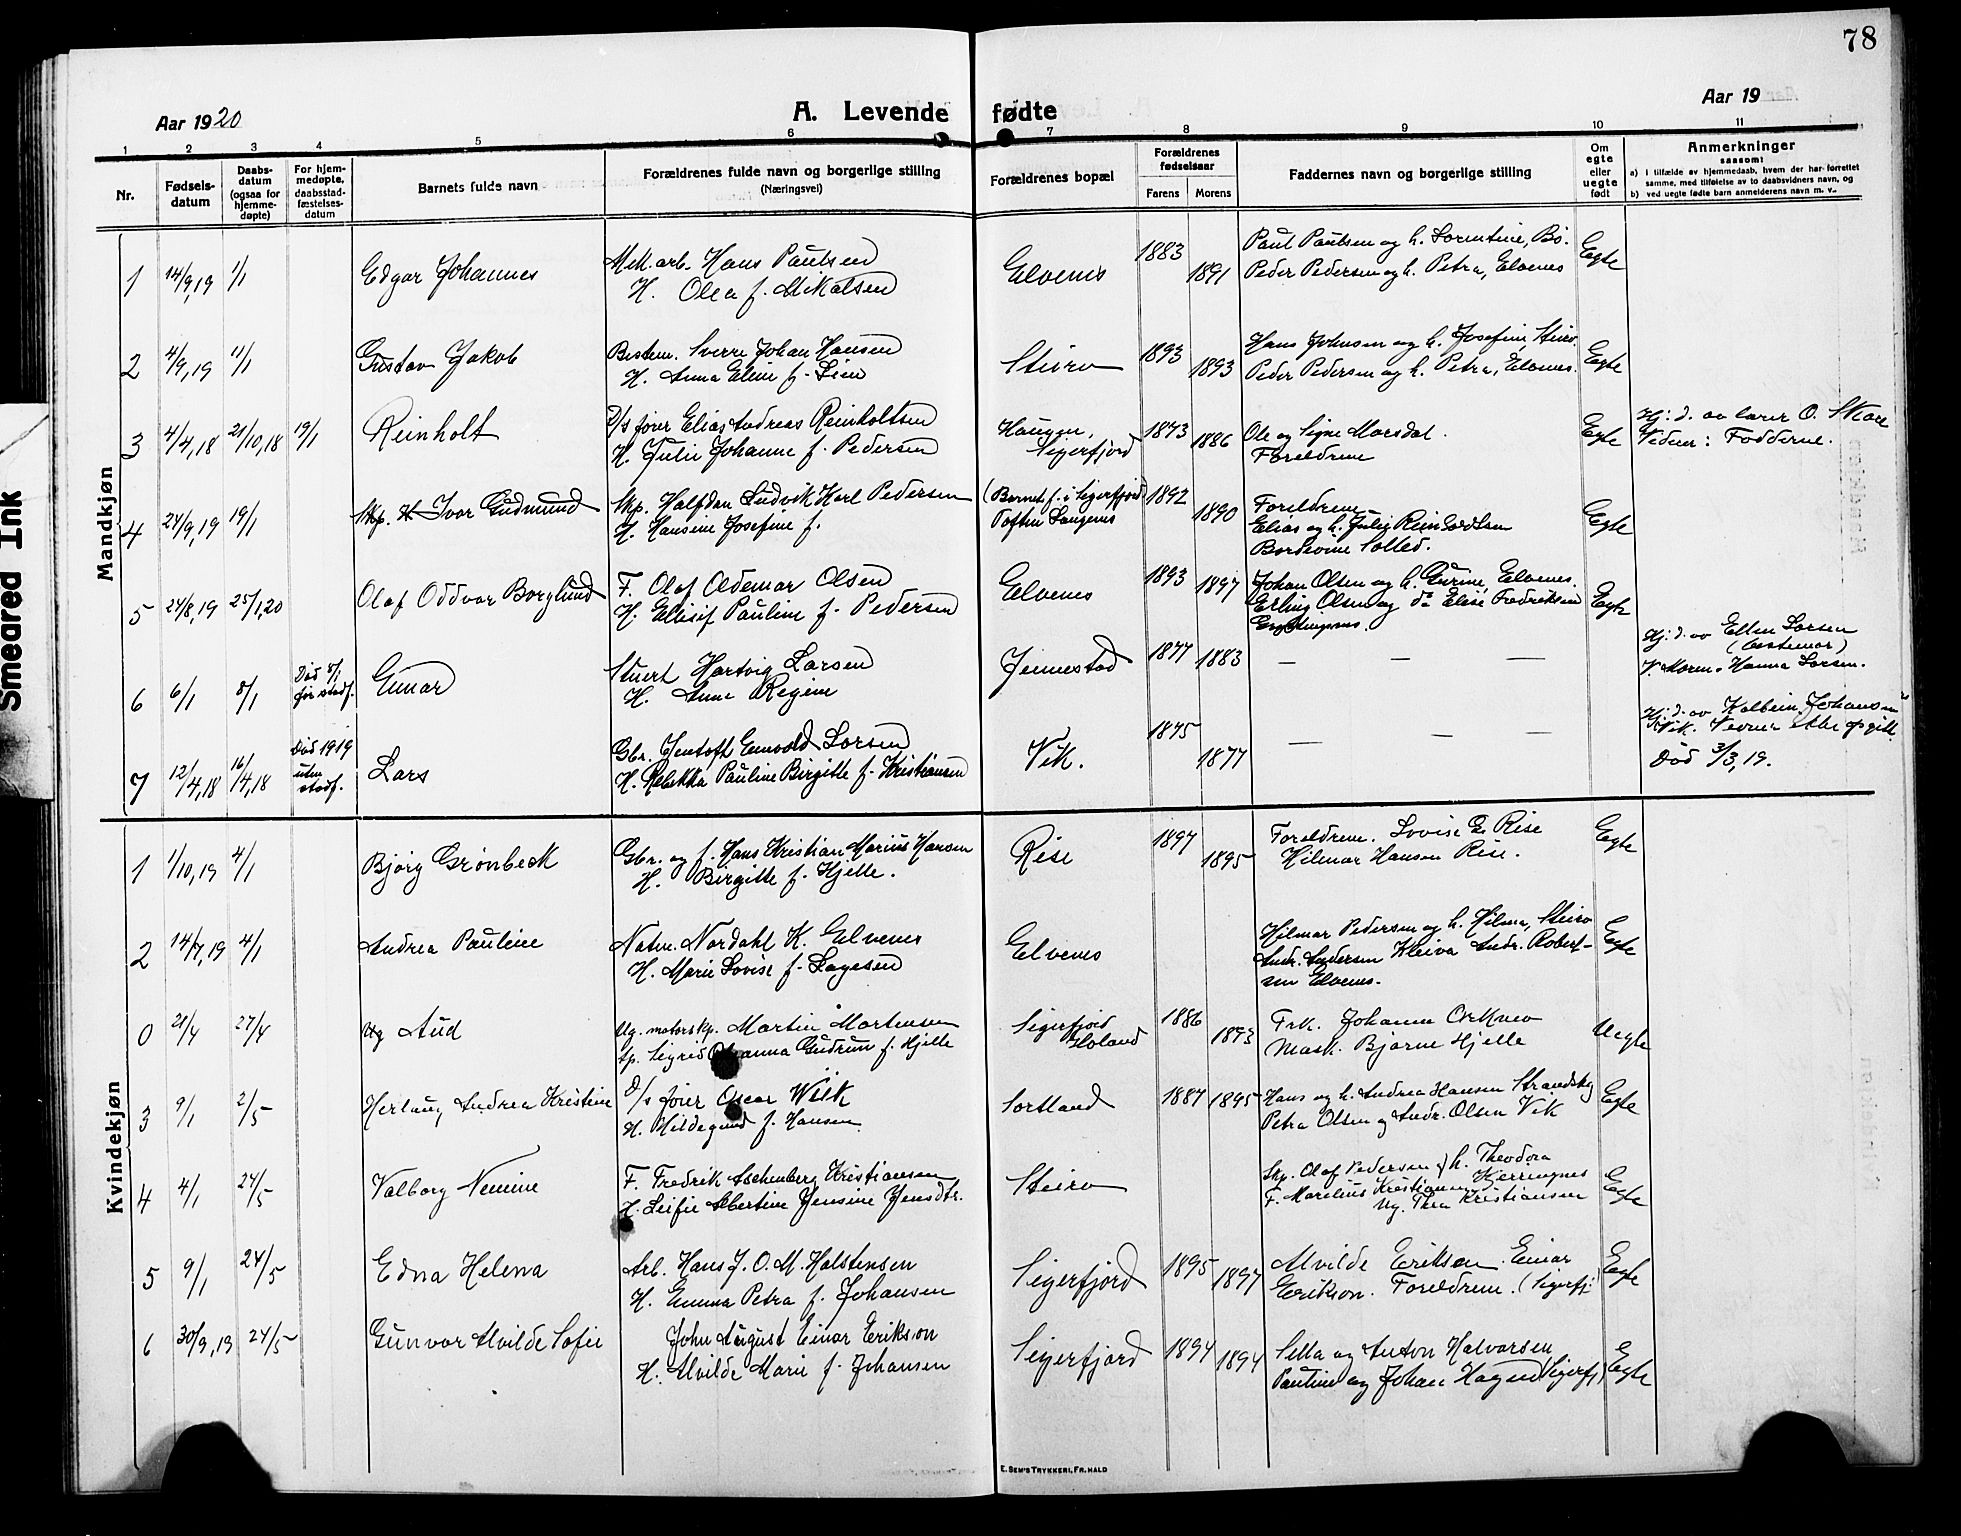 78
Aar 1920
A. Levende fødte
Aar 19
1 2 3 4 5 6 7 8 9 10 11
Nr.
Fødsels-
datum
Daabs-
datum
(ogsaa for
hjemme-
døpte)
For hjem-
medøpte,
daabsstad-
fæstelses-
datum
Barnets fulde navn
Forældrenes fulde navn og borgerlige stilling
(Næringsvei)
Forældrenes bopæl
Forældrenes
fødselsaar
Farens Morens
Faddernes navn og borgerlige stilling
Om
egte
eller
uegte
født
Anmerkninger
saasom:
a) i tilfælde av hjemmedaab, hvem der har forrettet
samme, med tilføielse av to daabsvidners navn, og
b) ved uegte fødte barn anmelderens navn m. v.
Smeared Ink
Mandkjøn
1 14/9,19 1/1 Edgar Johannes
Mek.arb. Hans Paulsen
H. Olea f. Mikalsen
Elvenes 1883 1891
Paul Paulsen og h. Lorentine, Bø.
Peder Pedersen og h. Petra, Elvenes
Egte
2 4/9,19 11/1 Gustav Jakob
Bestem. Sverre Johan Hansen
H. Anna Elene f. Lien
Steiro 1893 1893
Hans Johnsen og h. Josefine, Steiro.
Peder Pedersen og h. Petra, Elvenes.
Egte
3 4/4,18 21/10,18 19/1 Reinholt
D/s fører Elias Andreas Reinholtsen
H. Julie Johanne f. Pedersen
Haugen,
Sigerfjord
1873 1886
Ole og Signe Marsdal.
Foreldrene
Egte
Hj. d. av lærer O. Skare
Vidner: Fadderne.
4 24/9,19 19/1 Skp. Ivar Gudmund
Skp. Halfdan Ludvik Karl Pedersen
H. Hansine Josefine f.
(Barnet f. i Sigerfjord
Toften Langenes
1892 1890
Foreldrene
Elias og h. Julie Reinholdtsen
Egte
5 24/8,19 25/1,20 Olaf Oddvar Borglund
F. Olaf Aldemar Olsen
H. Ellisif Pauline f. Pedersen
Elvenes 1893 1897
Johan Olsen og h. Gurine, Elvenes.
Erling Olsen og do Elise Fredriksen
Egte
6 6/1 8/1
Død 8/1
før stadf.
Einar
Stuert Hartvig Larsen
H. Anna Regine
Jennestad 1877 1883
— — —
Hj. d. av Ellen Larsen
(bestemor)
V. Moren. Hanna Larsen.
7 12/4,18 16/4,18
Død 1919
uten
stadf.
Lars
Gbr. Jentoft Enevold Larsen
H. Rebekka Pauline Birgitte f. Kristiansen
Vik. 1875 1877
— — —
Hj. d. av Kolbein Johansen
Vik. Vidner ikke opgitt.
Død 3/3,19.
Kvindekjøn
1 1/10,19 4/1 Bjørg Grønbeck
Gbr. og f. Hans Kristian Marius Hansen
H. Birgitte f. Hjelle.
Rise 1897 1895
Foreldrene. Lovise G. Rise
Hilmar Hansen Rise.
Egte
2 14/7,19 4/1 Andrea Pauline
Natm. Nordahl K. Elvenes
H. Marie Lovise f. Lagesen
Elvenes
Hilmar Pedersen og h. Hilma, Steiro
Andr. Andersen Kleiva Andr. Robert-
sen Elvenes.
Egte
0 21/4 27/4 Ug Aud
Ug. motorskp. Martin Mortensen
Sp. Sigrid Johanna Gudrun f. Hjelle
Sigerfjord
Holand
1886 1893
Frk. Johanne
Mask. Bjarne Hjelle
Uegte
3 9/1 2/5 Herlaug Andrea Kristine
D/s fører Oscar Wiik
H. Hildegund f. Hansen.
Sortland 1887 1895
Hans og h. Andrea Hansen Strandskog
Petra Olsen og Andr. Olsen Vik
Egte
4 4/1 24/5 Valborg Nemine
F. Fredrik Aschenberg Kristiansen
H. Leifie Albertine Jensine Jensdtr.
Steiro
Skp. Olaf Pedersen og h. Theodora
F. Marelius Kristiansen Kjerringnes
Ug. Thea Kristiansen
Egte
5 9/1 24/5 Edna Helena
Arb. Hans J. O. M. Halstensen
H. Emma Petra f. Johansen
Sigerfjord 1895 1897
Alvilde Erikson. Einar
Erikson. Foreldrene. (Sigerfj.)
Egte
6 30/9,19 24/5 Gunvor Alvilde Sofie
John August Einar Erikson
H. Alvilde Marie f. Johansen
Sigerfjord 1894 1894
Sella og Anton Halvorsen
Pauline og Johan Hagen (Sigerfj)
Egte
E. SEM'S TRYKKERI, FR.HALD